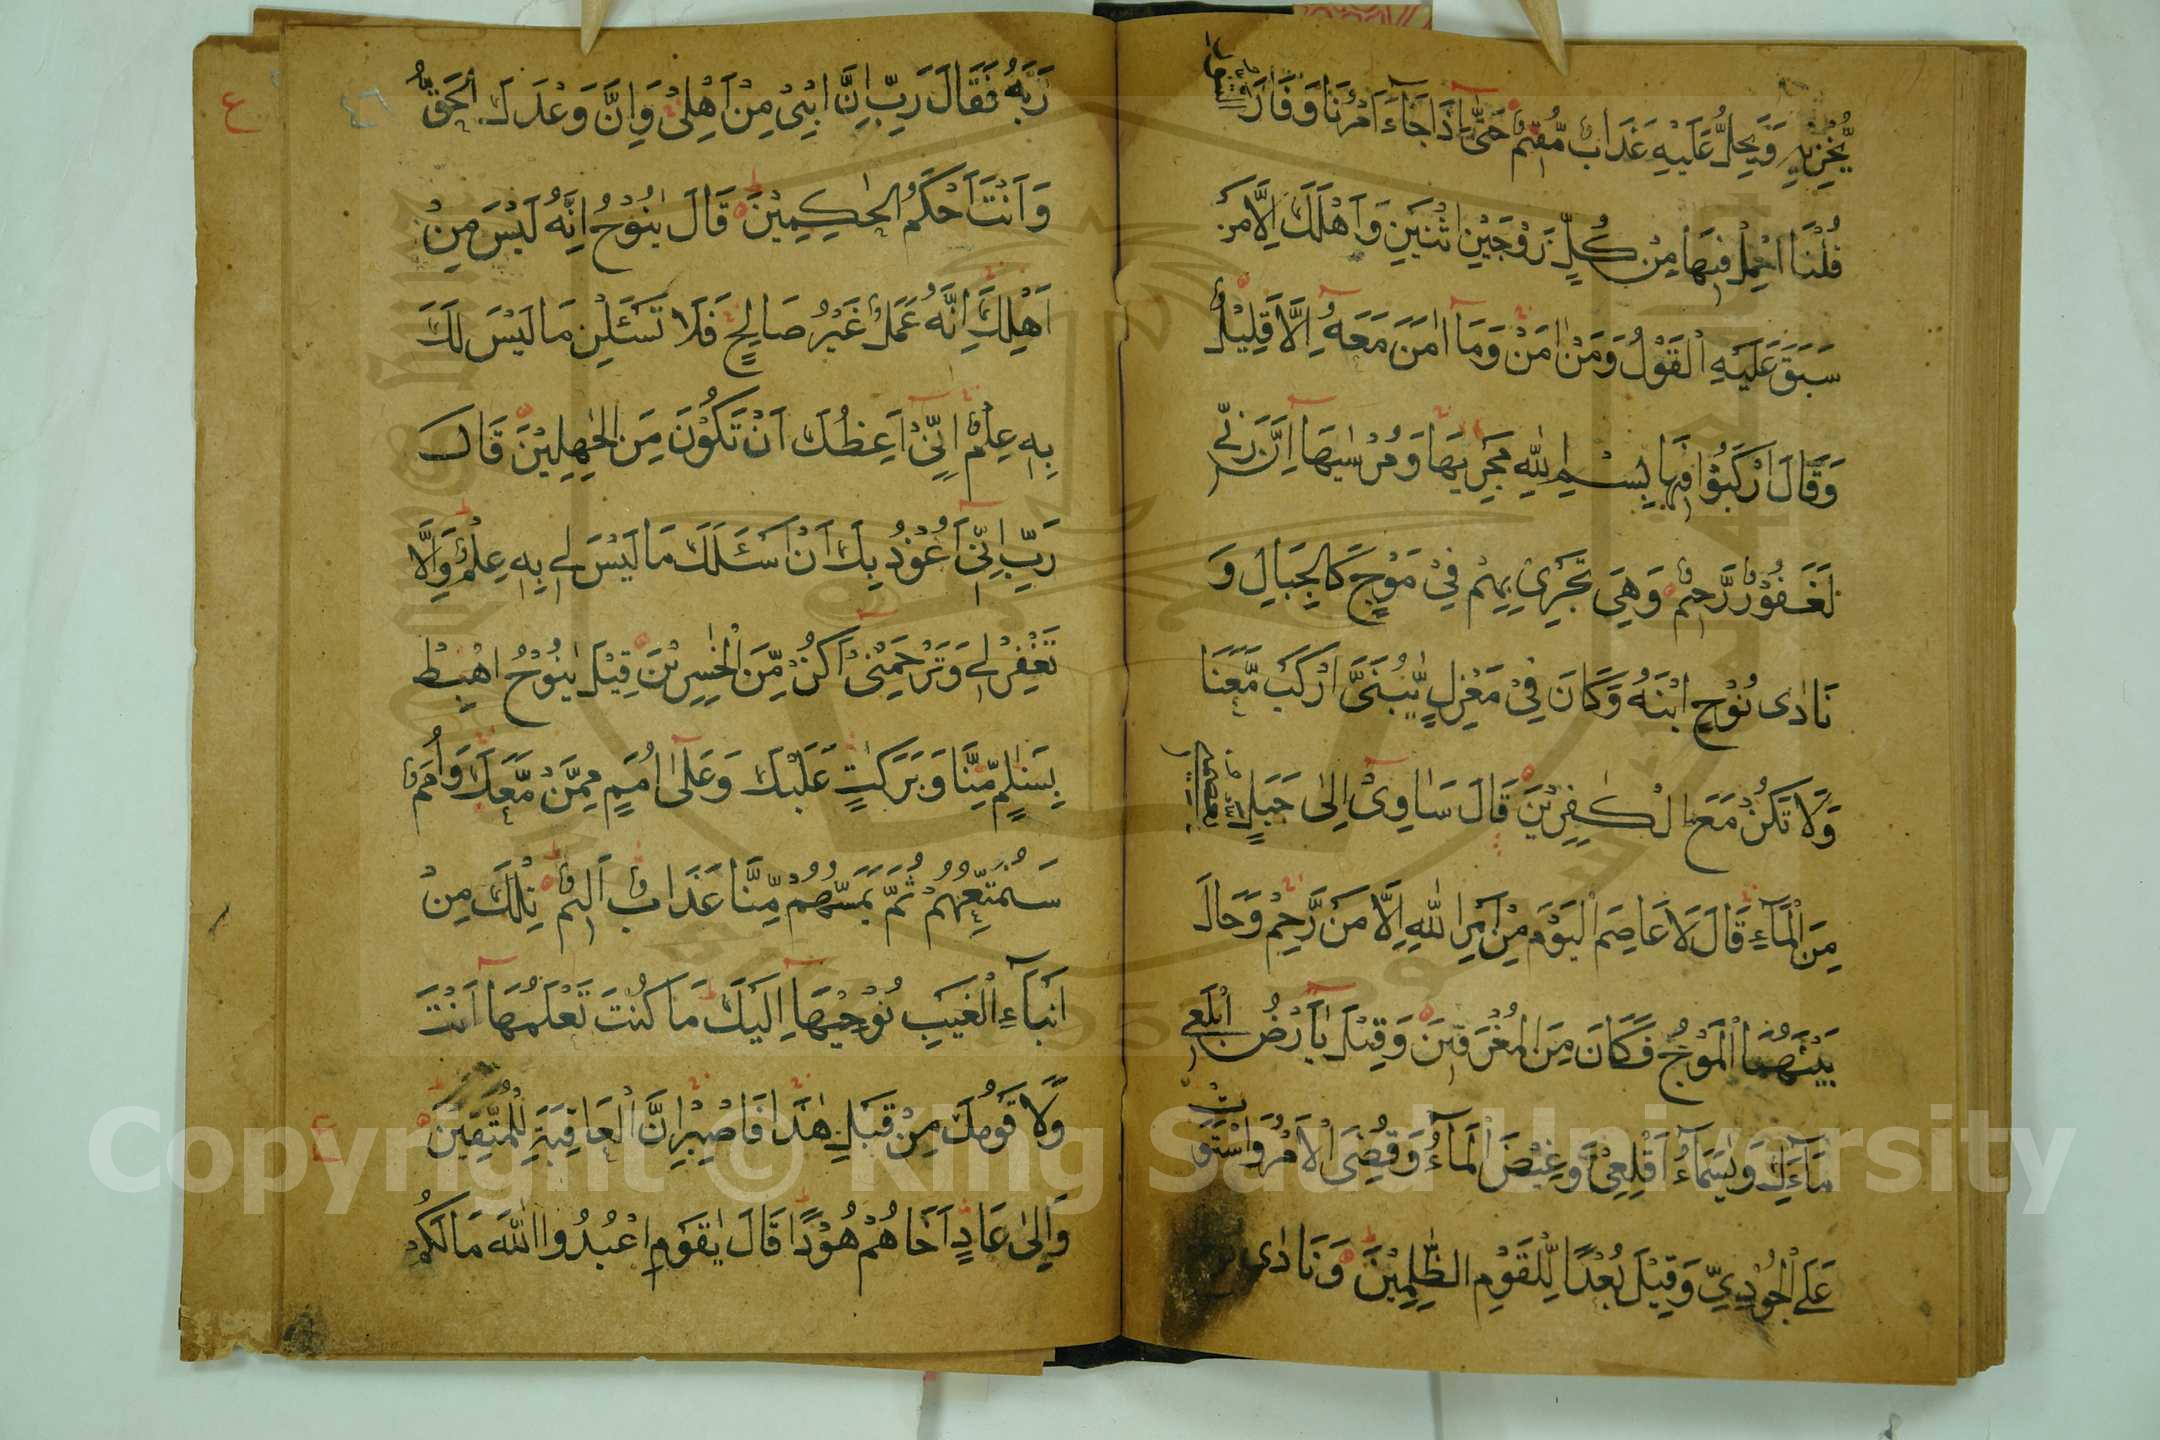 يُّخْزِيْهِ وَيَحِلُّ عَلَيْهِ عَذَابٌ مُّقِيْمٌ حَتّٰىٓ اِذَا جَآءَ اَمْرُنَا وَفَارَ
التنور
قُلْنَا احْمِلْ فِيْهَا مِنْ كُلٍّ زَوْجَيْنِ اثْنَيْنِ وَاَهْلَكَ اِلَّا مَنْ
سَبَقَ عَلَيْهِ الْقَوْلُ وَمَنْ اٰمَنَ وَمَآ اٰمَنَ مَعَهٗٓ اِلَّا قَلِيْلٌ
وَقَالَ ارْكَبُوْا فِيْهَا بِسْمِ اللّٰهِ مَجْرٖىهَا وَمُرْسٰىهَآ اِنَّ رَبِّيْ
لَغَفُوْرٌ رَّحِيْمٌ وَهِيَ تَجْرِيْ بِهِمْ فِيْ مَوْجٍ كَالْجِبَالِ وَ
نَادٰى نُوْحُ ابْنَهٗ وَكَانَ فِيْ مَعْزِلٍ يّٰبُنَيَّ ارْكَبْ مَّعَنَا
وَلَا تَكُنْ مَّعَ الْكٰفِرِيْنَ قَالَ سَاٰوِيْٓ اِلٰى جَبَلٍ
يعصمني
مِنَ الْمَآءِ قَالَ لَا عَاصِمَ الْيَوْمَ مِنْ اَمْرِ اللّٰهِ اِلَّا مَنْ رَّحِمَ وَحَالَ
بَيْنَهُمَا الْمَوْجُ فَكَانَ مِنَ الْمُغْرَقِيْنَ وَقِيْلَ يٰٓاَرْضُ ابْلَعِيْ
مَآءَكِ وَيٰسَمَآءُ اَقْلِعِيْ وَغِيْضَ الْمَآءُ وَقُضِيَ الْاَمْرُ وَاسْتَوَتْ
عَلَى الْجُوْدِيِّ وَقِيْلَ بُعْدًا لِّلْقَوْمِ الظّٰلِمِيْنَ وَنَادٰى نُوْحٌ
رَّبَّهٗ فَقَالَ رَبِّ اِنَّ ابْنِيْ مِنْ اَهْلِيْ وَاِنَّ وَعْدَكَ الْحَقُّ
وَاَنْتَ اَحْكَمُ الْحٰكِمِيْنَ قَالَ يٰنُوْحُ اِنَّهٗ لَيْسَ مِنْ
اَهْلِكَ اِنَّهٗ عَمَلٌ غَيْرُ صَالِحٍ فَلَا تَسْـَٔلْنِ مَا لَيْسَ لَكَ
بِهٖ عِلْمٌ اِنِّيْٓ اَعِظُكَ اَنْ تَكُوْنَ مِنَ الْجٰهِلِيْنَ قَالَ
رَبِّ اِنِّيْٓ اَعُوْذُ بِكَ اَنْ اَسْـَٔلَكَ مَا لَيْسَ لِيْ بِهٖ عِلْمٌ وَاِلَّا
تَغْفِرْ لِيْ وَتَرْحَمْنِيْٓ اَكُنْ مِّنَ الْخٰسِرِيْنَ قِيْلَ يٰنُوْحُ اهْبِطْ
بِسَلٰمٍ مِّنَّا وَبَرَكٰتٍ عَلَيْكَ وَعَلٰٓى اُمَمٍ مِّمَّنْ مَّعَكَ وَاُمَمٌ
سَنُمَتِّعُهُمْ ثُمَّ يَمَسُّهُمْ مِّنَّا عَذَابٌ اَلِيْمٌ تِلْكَ مِنْ
اَنْۢبَآءِ الْغَيْبِ نُوْحِيْهَآ اِلَيْكَ مَا كُنْتَ تَعْلَمُهَآ اَنْتَ
وَلَا قَوْمُكَ مِنْ قَبْلِ هٰذَا فَاصْبِرْ اِنَّ الْعَاقِبَةَ لِلْمُتَّقِيْنَ
وَاِلٰى عَادٍ اَخَاهُمْ هُوْدًا قَالَ يٰقَوْمِ اعْبُدُوا اللّٰهَ مَا لَكُمْ
ع
Copyright © King Saud University